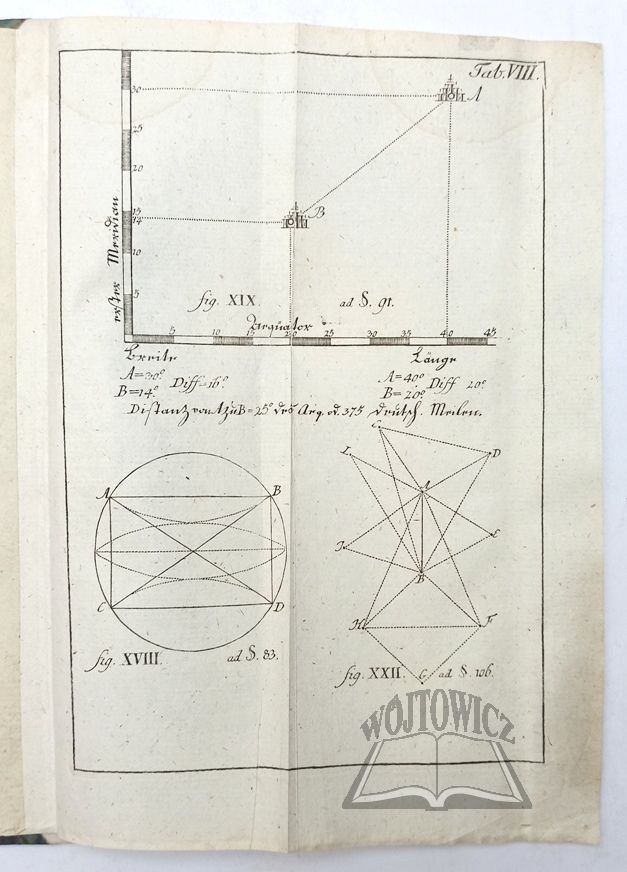 Tab. VIII.
30
A
25
20
15
14
B
10
5
erster Meridian
fig. XIX. ad §. 91.
Aequator
5 10 15 20 25 30 35 40 45
Breite
Länge
A=30° B=14° Diff=16°
A=40° B=20° Diff 20°
Distanz von A zu B=25° des Aeq. od. 375 deutsch. Meilen.
A B
C D
fig. XVIII. ad §. 83.
C
L D
A
J E
B
H F
G
fig. XXII. ad §. 106.
WÓJTOWICZ